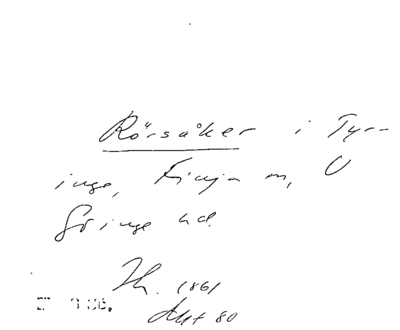 Rörsåker i Tyr-
inge, Finja sn, V
Göinge hd.
Th. 1861
Akt 80